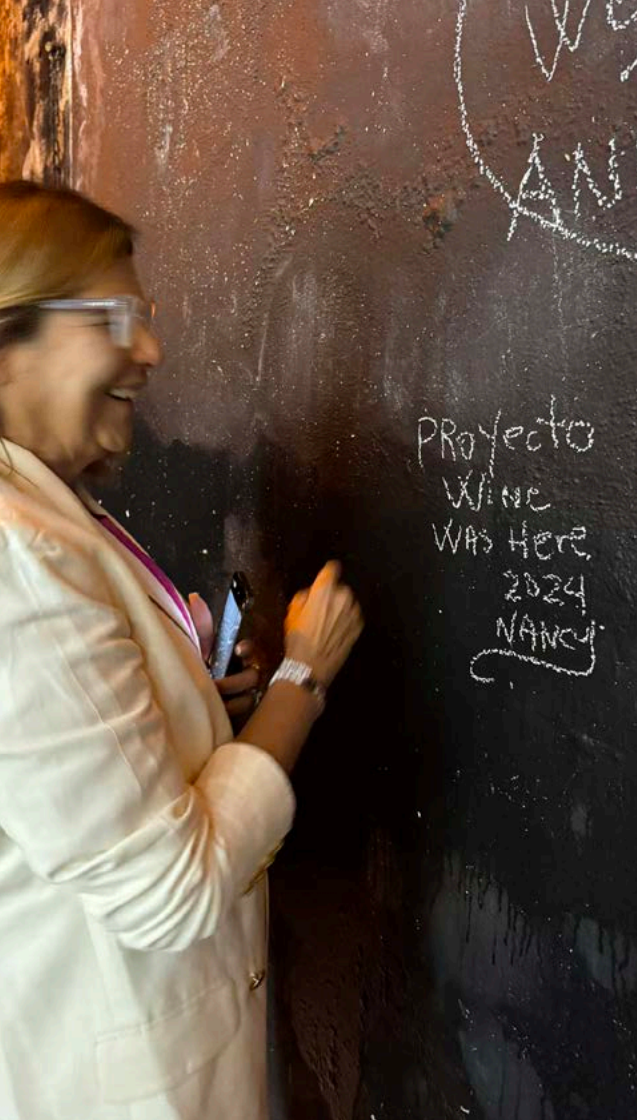 AN
PROYecTO
WiNe
WAS Here
2024
NANCY